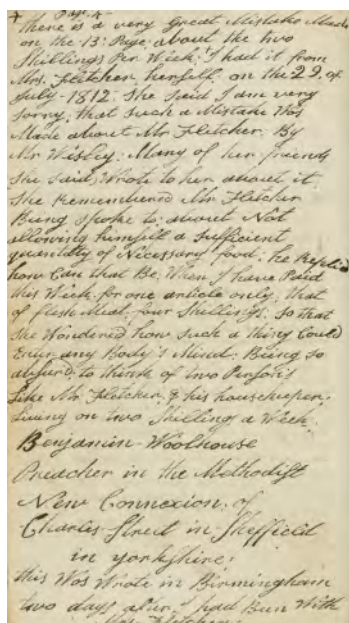 + Page 4
there is a very Great Mistake Made
on the 13: Page: about the two
Shillings Per Week; I had it from
Mrs. Fletcher, herself, on the 29, of
July - 1812: She said I am very
sorry, that such a Mistake Was
Made about Mr Fletcher: By
Mr Wisley: Many of her friends
She said, Wrote to her about it
She Remembered Mr. Fletcher
Being spoke to: about Not
allowing himself a Sufficient
quantity of Nicessary food: he Replied
how Can that Be: When I have Paid
this Week: for one article only, that
of flesh Meat, four Shillings: So that
She Wondered how such a thing Could
Enter any Body's Mind: Being so
absurd: to think of two Persons
Like Mr Fletcher & his housekeeper,
Living on two Shillings a Week.
Benjamin - Woolhouse
Preacher in the Methodist
New Connexion, of
Charles Street in Sheffield
in yorkshire,
this Was Wrote in Birmingham
two days after I had Bun With
Fletcher